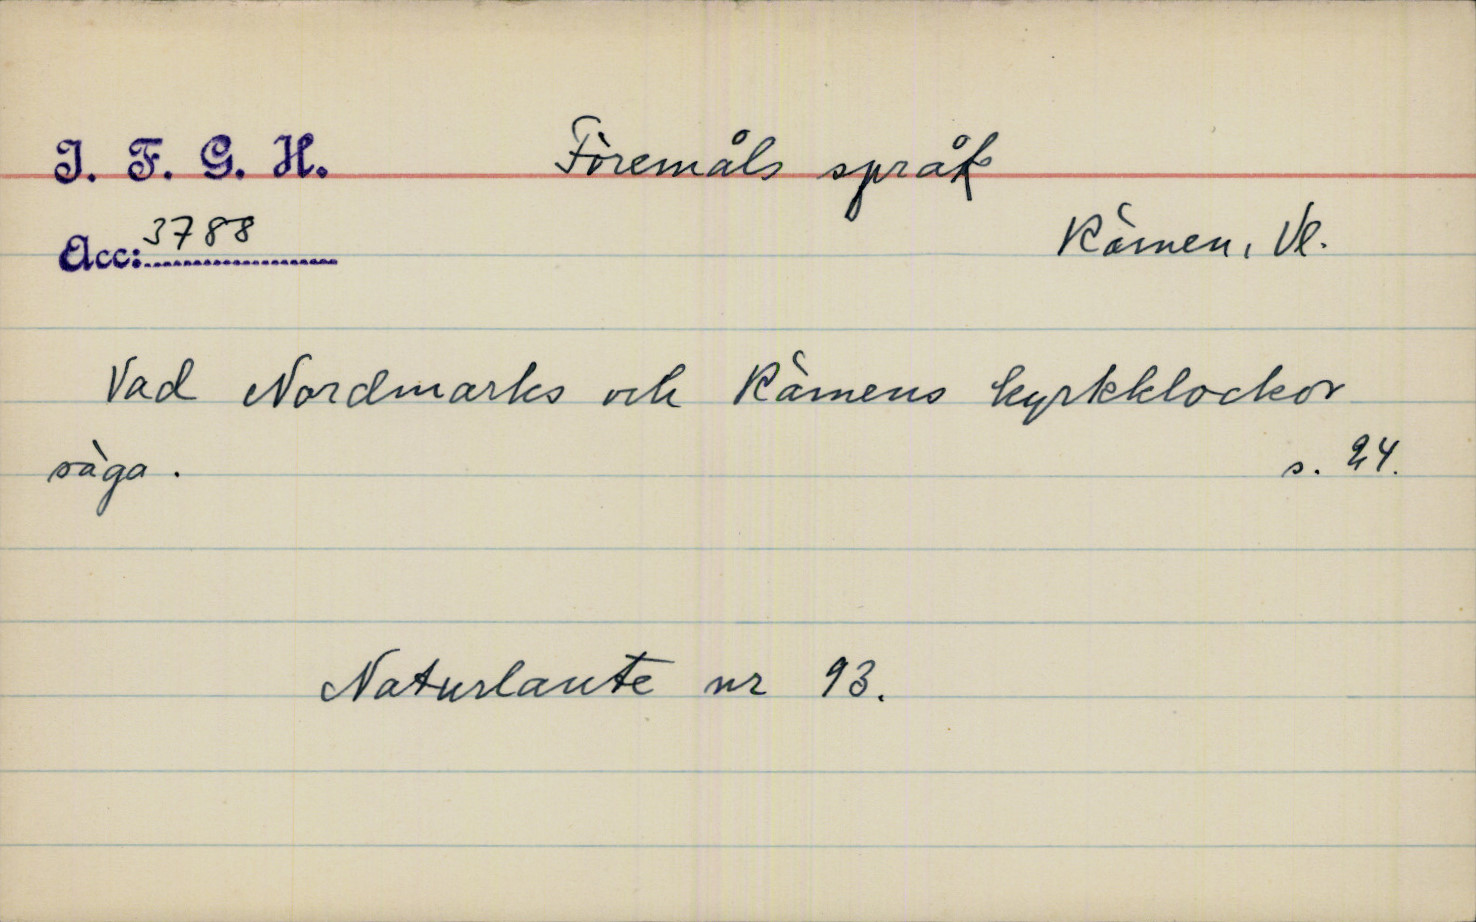 I. F. G. H.
Föremåls språk
Acc: 3788
Rämen, Vl.
Vad Nordmarks och Rämens kyrkklockor
säga.
s. 24.
Naturlaute nr 93.